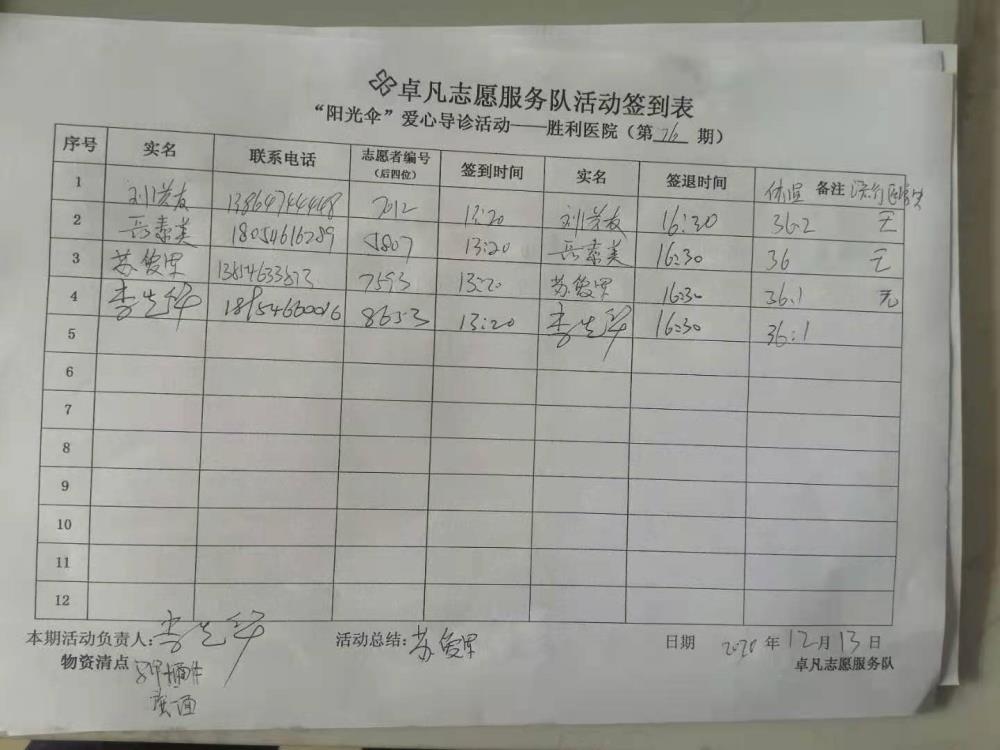 卓凡志愿服务队活动签到表
“阳光伞”爱心导诊活动——胜利医院（第 76 期）
序号 实名 联系电话 志愿者编号（后四位） 签到时间 实名 签退时间 体温 备注
1 刘芳友 13864744448 7012 13:20 刘芳友 16:30 36.2 无
2 岳素美 18054616289 5807 13:20 岳素美 16:30 36 无
3 苏俊田 7593 13:20 苏俊田 16:30 36.1 无
4 李先科 18154660016 8653 13:20 李先科 16:30 36:1
5
6
7
8
9
10
11
12
本期活动负责人: 李先科 活动总结: 苏俊田 日期 2020 年 12 月 13 日
物资清点 卓凡志愿服务队